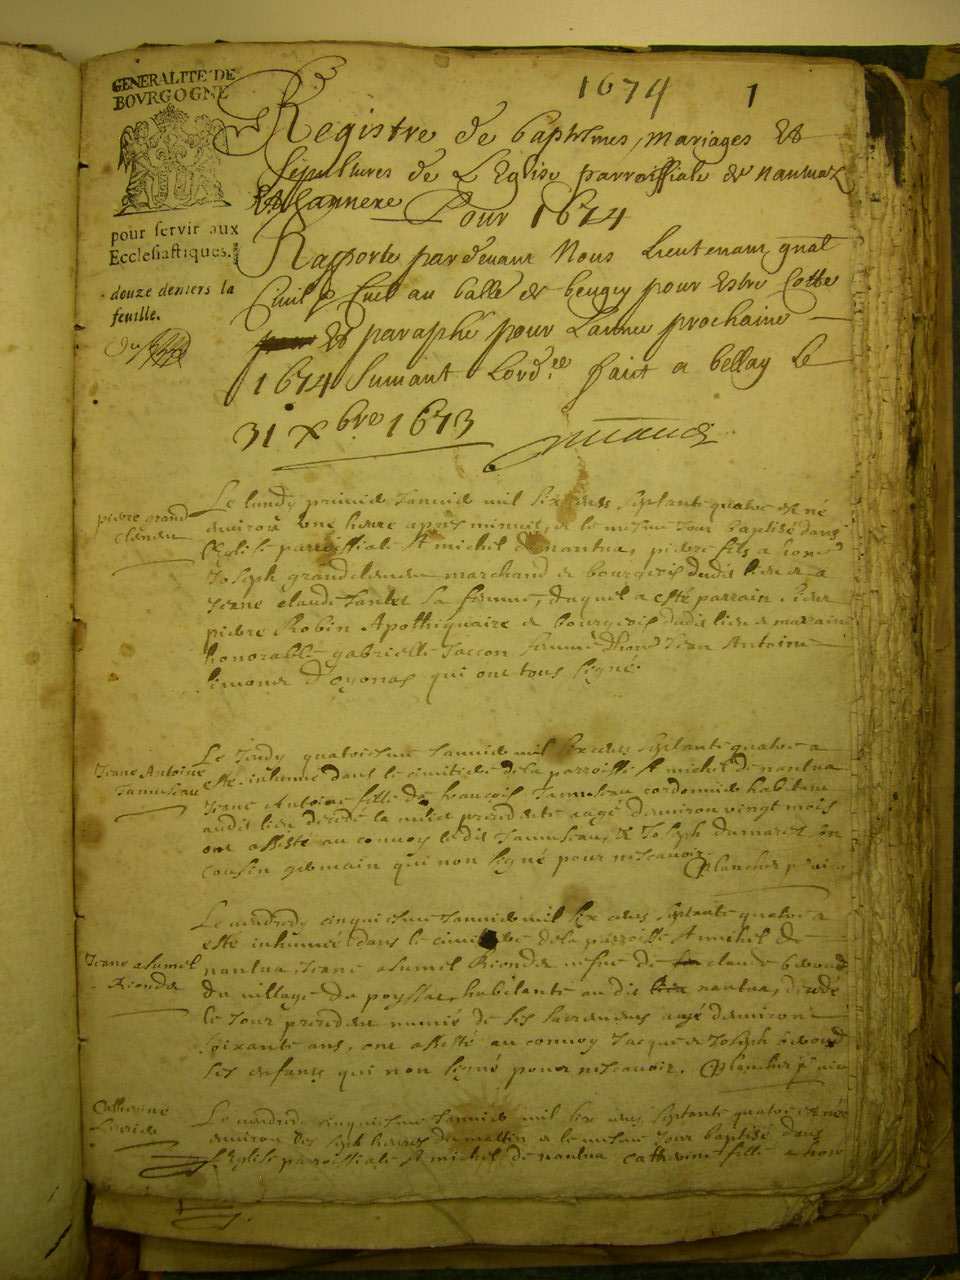 1674 1
GENERALITE DE
BOVRGOGNE
pour servir aux
Ecclesiastiques.
douze deniers la
feuille.
Registre de baptesmes, mariages Et
sepultures de L Eglise parroissiale de nantuaz
Et Lannexe Pour 1674
Rapporte pardevant Nous Lieutenant gnal
Civil & au balle de beugey pour Estre Cotte
Et paraphé pour Lannee prochaine
1674 Suivant Lord.ce faict a bellay le
31 Xbre 1673
pierre grand
clement
Le lundy premier Janvier mil six cens septante quatre est né
environ une heure apres minuit, et le mesme jour baptisé dans
l'Eglise parroissiale st michel de nantua, pierre fils a hon
Joseph grandclement marchand et bourgeois dudit lieu et a
Jeane claude sa femme, duquel a esté parrain sieur
pierre Robin Apothiquaire et bourgeois dudit lieu et marraine
honorable gabrielle Jaccon femme dhon Jean Antoine
d'oyonas qui ont tous signé.
Jeane Antoine
Le Jeudy quatriesme Janvier mil six cens septante quatre a
esté inhumée dans le cimitiere de la parroisse st michel de nantua
Jeane Antoine fille de françois cordonnier habitant
audit lieu decedé la nuict precedente aagé denviron vingt mois
ont assisté au convoy ledit & Joseph dumarest son
cousin germain qui non signé pour ne scavoir. Planchet
Jeane
Le vendredy cinquiesme Janvier mil six cens septante quatre a
esté inhumée dans le cimitiere de la parroisse st michel de
nantua, Jeane vefve de claude
du village du habitante audit nantua, decedé
le jour precedent munie de ses sacremens aagé denviron
soixante ans, ont assisté au convoy Jacque et Joseph
ses enfans qui non signé pour ne scavoir. Planchet
Catherine
Le vendredy cinquiesme Janvier mil six cens septante quatre est née
environ les sept heures du mattin et le mesme jour baptisé dans
l'Eglise parroissiale st michel de nantua catherine fille a hon